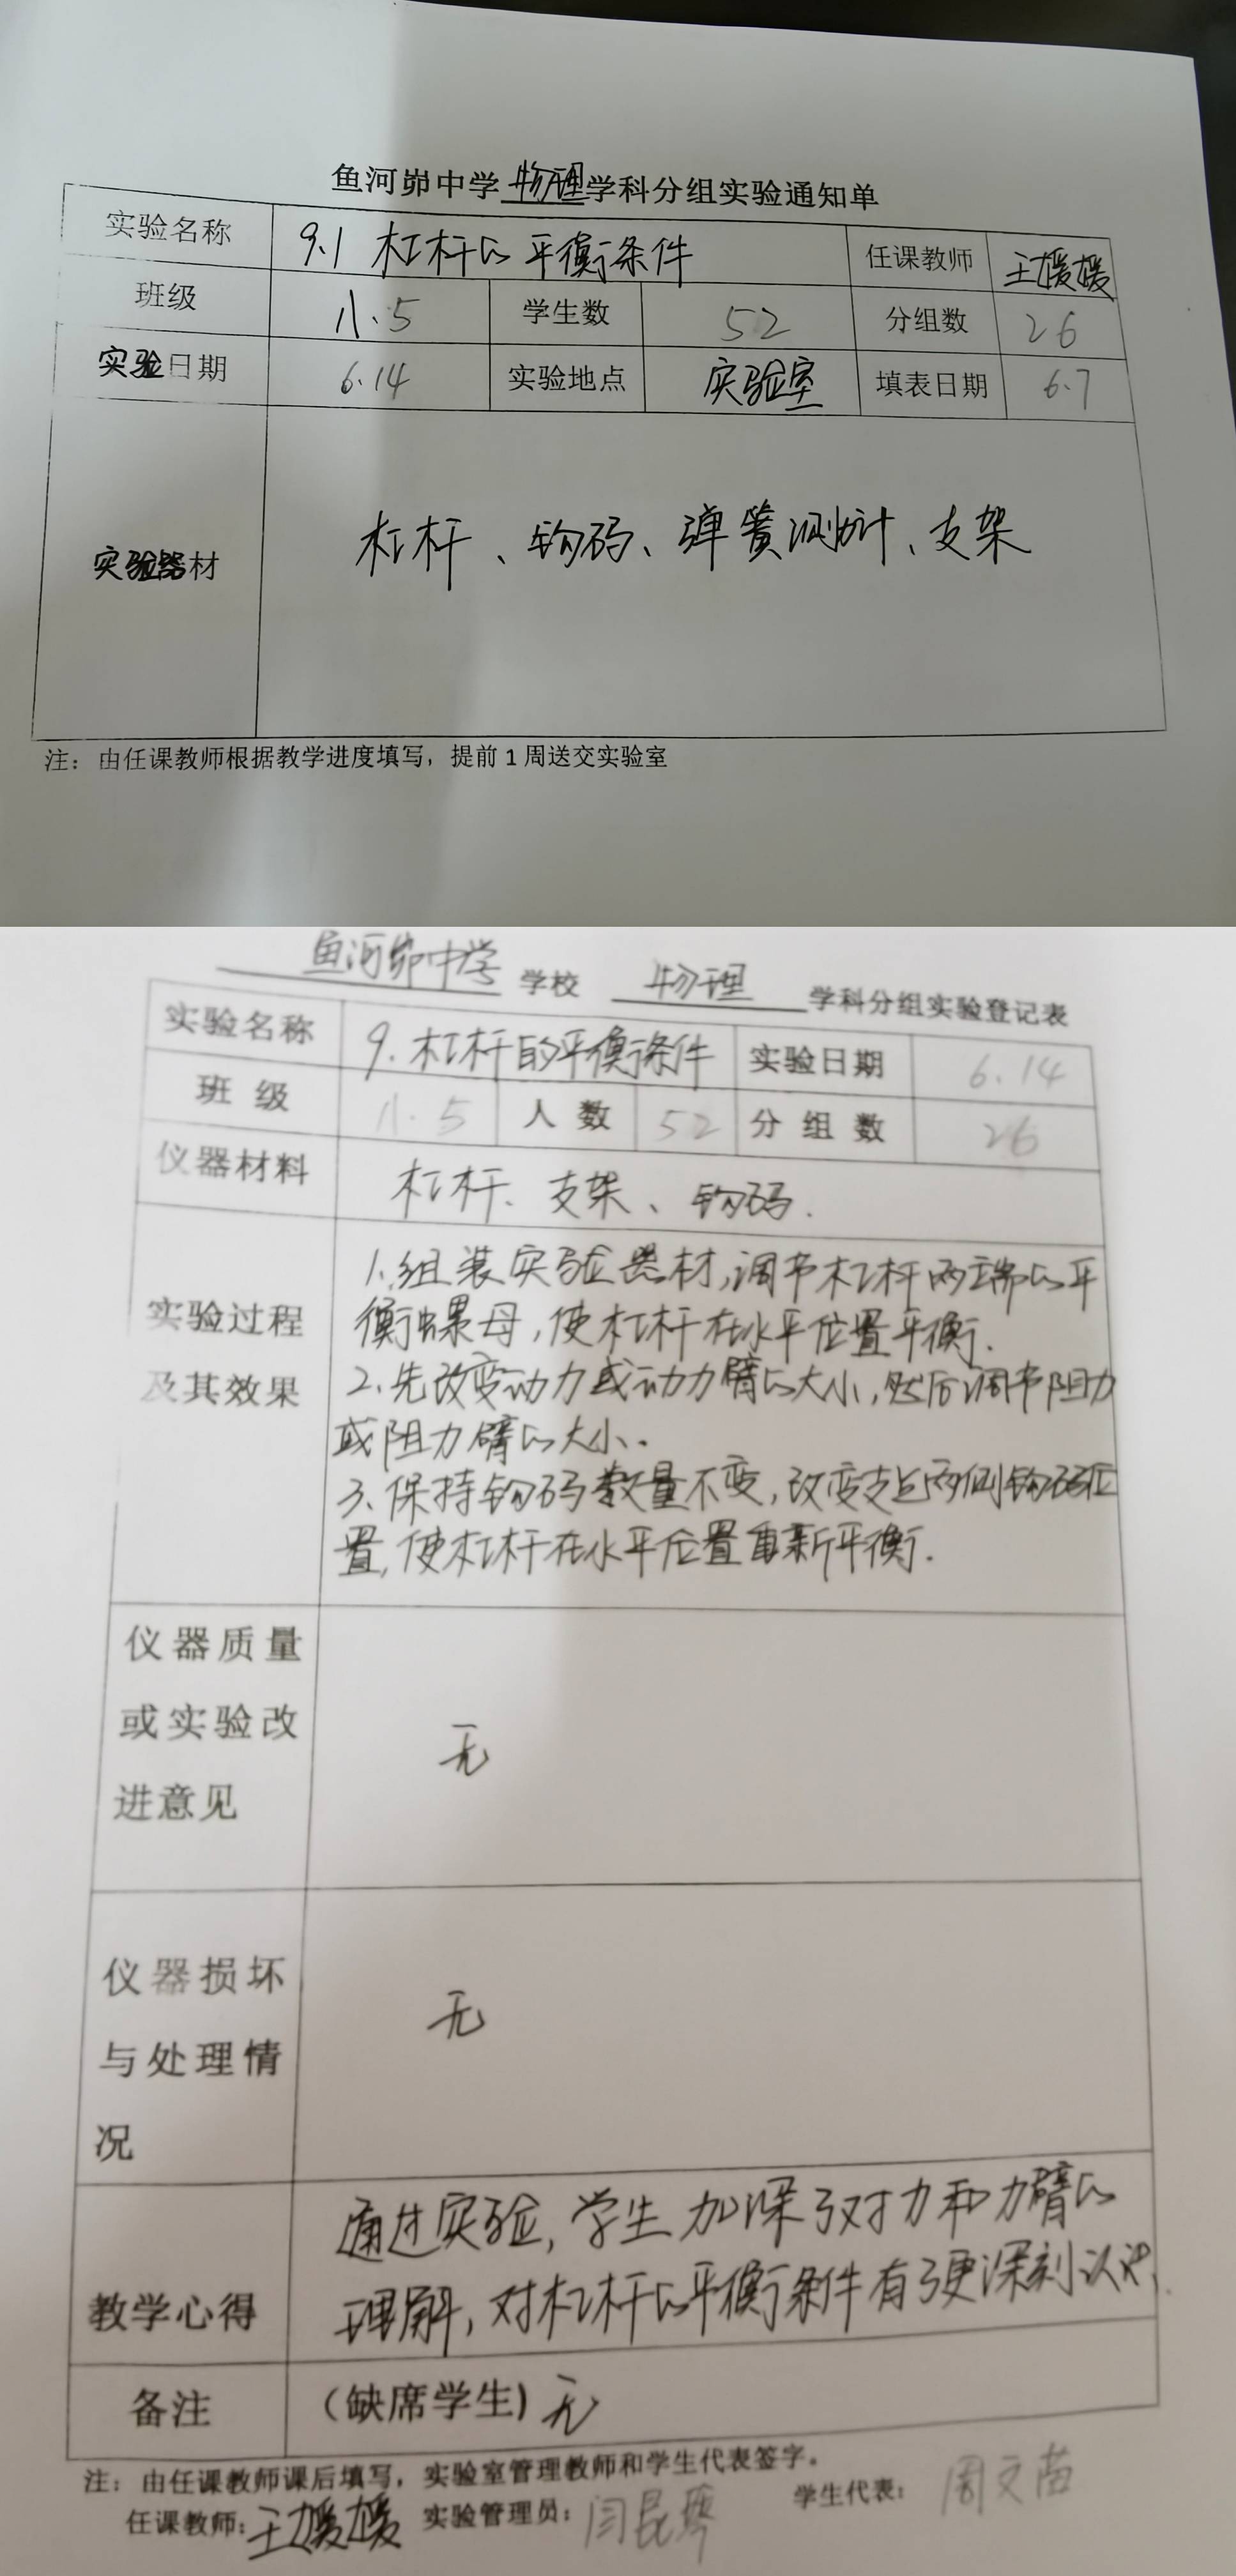 鱼河峁中学物理学科分组实验通知单
实验名称 9.1 杠杆的平衡条件 任课教师 王媛媛
班级 八.5 学生数 52 分组数 26
实验日期 6.14 实验地点 实验室 填表日期 6.7
实验器材 杠杆、钩码、弹簧测力计、支架
注：由任课教师根据教学进度填写，提前1周送交实验室
鱼河峁中学 学校 物理 学科分组实验登记表
实验名称 9.杠杆的平衡条件 实验日期 6.14
班级 八.5 人数 52 分组数 26
仪器材料 杠杆、支架、钩码.
实验过程及其效果
1.组装实验器材,调节杠杆两端的平
衡螺母,使杠杆在水平位置平衡.
2.先改变动力或动力臂的大小,然后调节阻力
或阻力臂的大小.
3.保持钩码数量不变,改变支点两侧钩码位
置,使杠杆在水平位置重新平衡.
仪器质量
或实验改
进意见
无
仪器损坏
与处理情
况
无
教学心得
通过实验,学生加深了对力和力臂的
理解,对杠杆的平衡条件有了更深刻认识.
备注 (缺席学生) 无
注：由任课教师课后填写，实验室管理教师和学生代表签字。
任课教师:王媛媛 实验管理员: 闫昆 学生代表: 周文苗